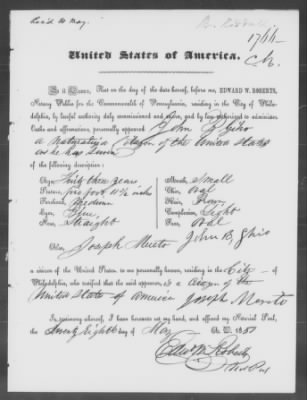 Rec'd 30 May.
1766
United States of America.
Be it Known, That on the day of the date hereof, before me, EDWARD W. ROBERTS,
Notary Public for the Commonwealth of Pennsylvania, residing in the City of Phila-
delphia, by lawful authority duly commissioned and sworn, and by law authorized to administer
Oaths and affirmations, personally appeared John B Ghio
a Naturalized Citizen of the United States
who he has Sworn
of the following description:
Age, Thirty three years
Stature, five foot 11½ inches
Forehead, Medium
Eyes, Blue
Nose, Straight
Mouth, Small
Chin, Oval
Hair, Brown
Complexion, Light
Face, Oval
John B, Ghio
Also, Joseph
a citizen of the United States, to me personally known, residing in the City of
Philadelphia, who testified that the said appearer, is a Citizen of the
United States of America Joseph
In testimony whereof, I have hereunto set my hand, and affixed my Notarial Seal,
the Twenty Eighth day of May A. D. 1851
Edw W Roberts
Not Pub